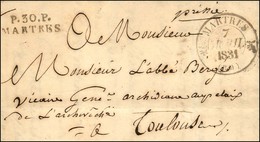 P.30.P.
MARTRES
MARTRES
7
1831
A Monsieur
Monsieur L'abbé Berger
Vicaire Gen^al archidiacre au palais
De L'archevêché
Toulouse